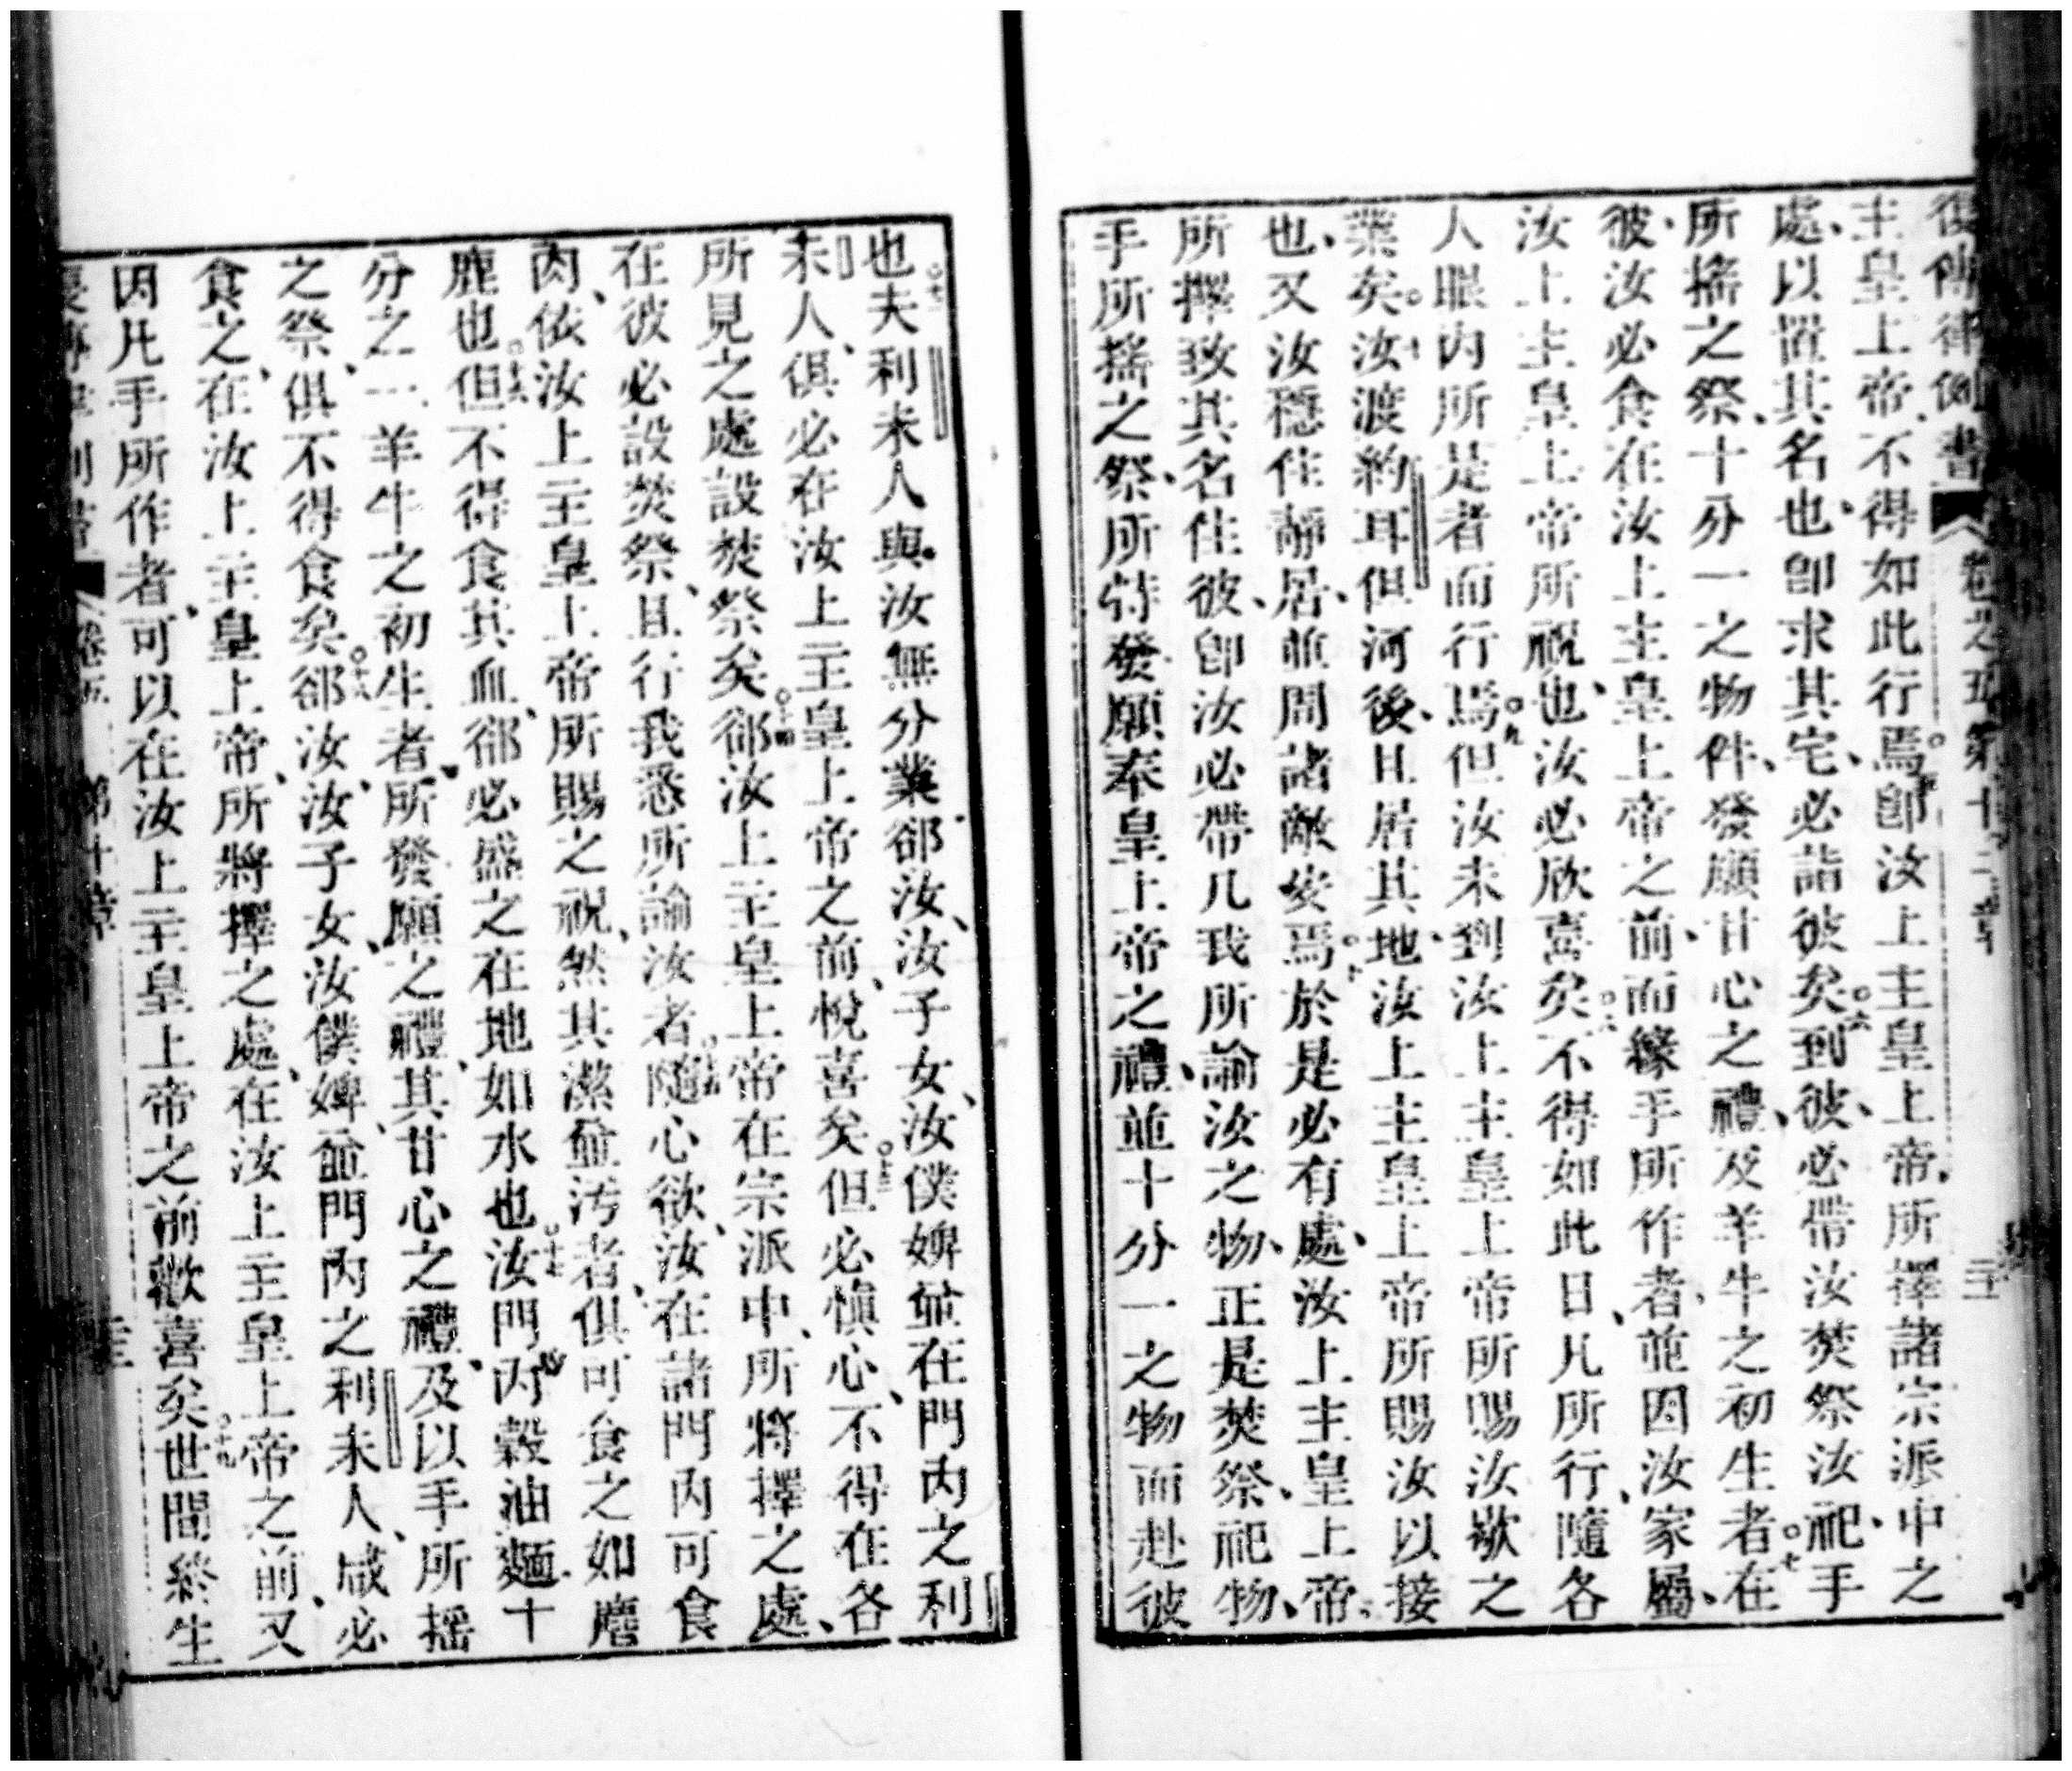 復傳律例書 卷之五第十二章
主皇上帝、不得如此行焉、○五卽汝上主皇上帝、所擇諸宗派中之
處、以置其名也、卽求其宅、必詣彼矣、○六到彼、必帶汝焚祭、汝祀、手
所搖之祭、十分一之物件、發願甘心之禮、及羊牛之初生者、○七在
彼、汝必食在汝上主皇上帝之前、而緣手所作者、並因汝家屬、
汝上主皇上帝所祝也、汝必欣喜矣、○八不得如此日、凡所行、隨各
人眼內所是者而行焉、○九但汝未到汝上主皇上帝所賜汝歇之
業矣、○十汝渡約耳但河後、且居其地、汝上主皇上帝所賜汝以接
也、又汝穩住靜居、並周諸敵安焉、○十一於是必有處、汝上主皇上帝、
所擇致其名住彼、卽汝必帶凡我所諭汝之物、正是焚祭、祀物、
手所搖之祭、所特發願奉皇上帝之禮、並十分一之物而赴彼
也、○十二夫利未人與汝無分業、郤汝、汝子女、汝僕婢、並在門內之利
未人、俱必在汝上主皇上帝之前、悅喜矣、○十三但必愼心、不得在各
所見之處設焚祭矣、○十四郤汝上主皇上帝在宗派中、所將擇之處、
在彼必設焚祭、且行我悉所諭汝者、○十五隨心欲、汝在諸門內可食
肉、依汝上主皇上帝所賜之祝、然其潔並汚者、俱可食之、如麞
鹿也、○十六但不得食其血、郤必盛之在地如水也、○十七汝門內、穀油麵十
分之一、羊牛之初生者、所發願之禮、其甘心之禮、及以手所搖
之祭、俱不得食矣、○十八郤汝、汝子女、汝僕婢、並門內之利未人、咸必
食之、在汝上主皇上帝、所將擇之處、在汝上主皇上帝之前、又
因凡手所作者、可以在汝上主皇上帝之前歡喜矣、○十九世間終生
卷五 第十章